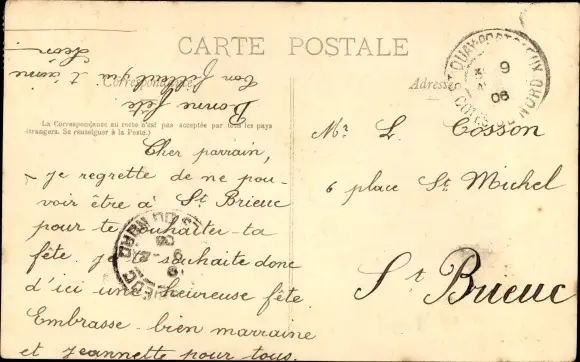 CARTE POSTALE
Correspondance
Adresse
La Correspondance au recto n'est pas acceptée par tous les pays
étrangers. Se renseigner à la Poste.)
Cher parrain,
je regrette de ne pou-
voir être à St Brieuc
pour te souhaiter ta
fête. je te souhaite donc
d'ici une heureuse fête
Embrasse bien marraine
et jeannette pour tous.
Bonne fête
ton filleul qui t'aime
Léon
Mr L. Cosson
6 place St Michel
St Brieuc
St QUAY-PORTRIEUX
9
06
COTES DU NORD